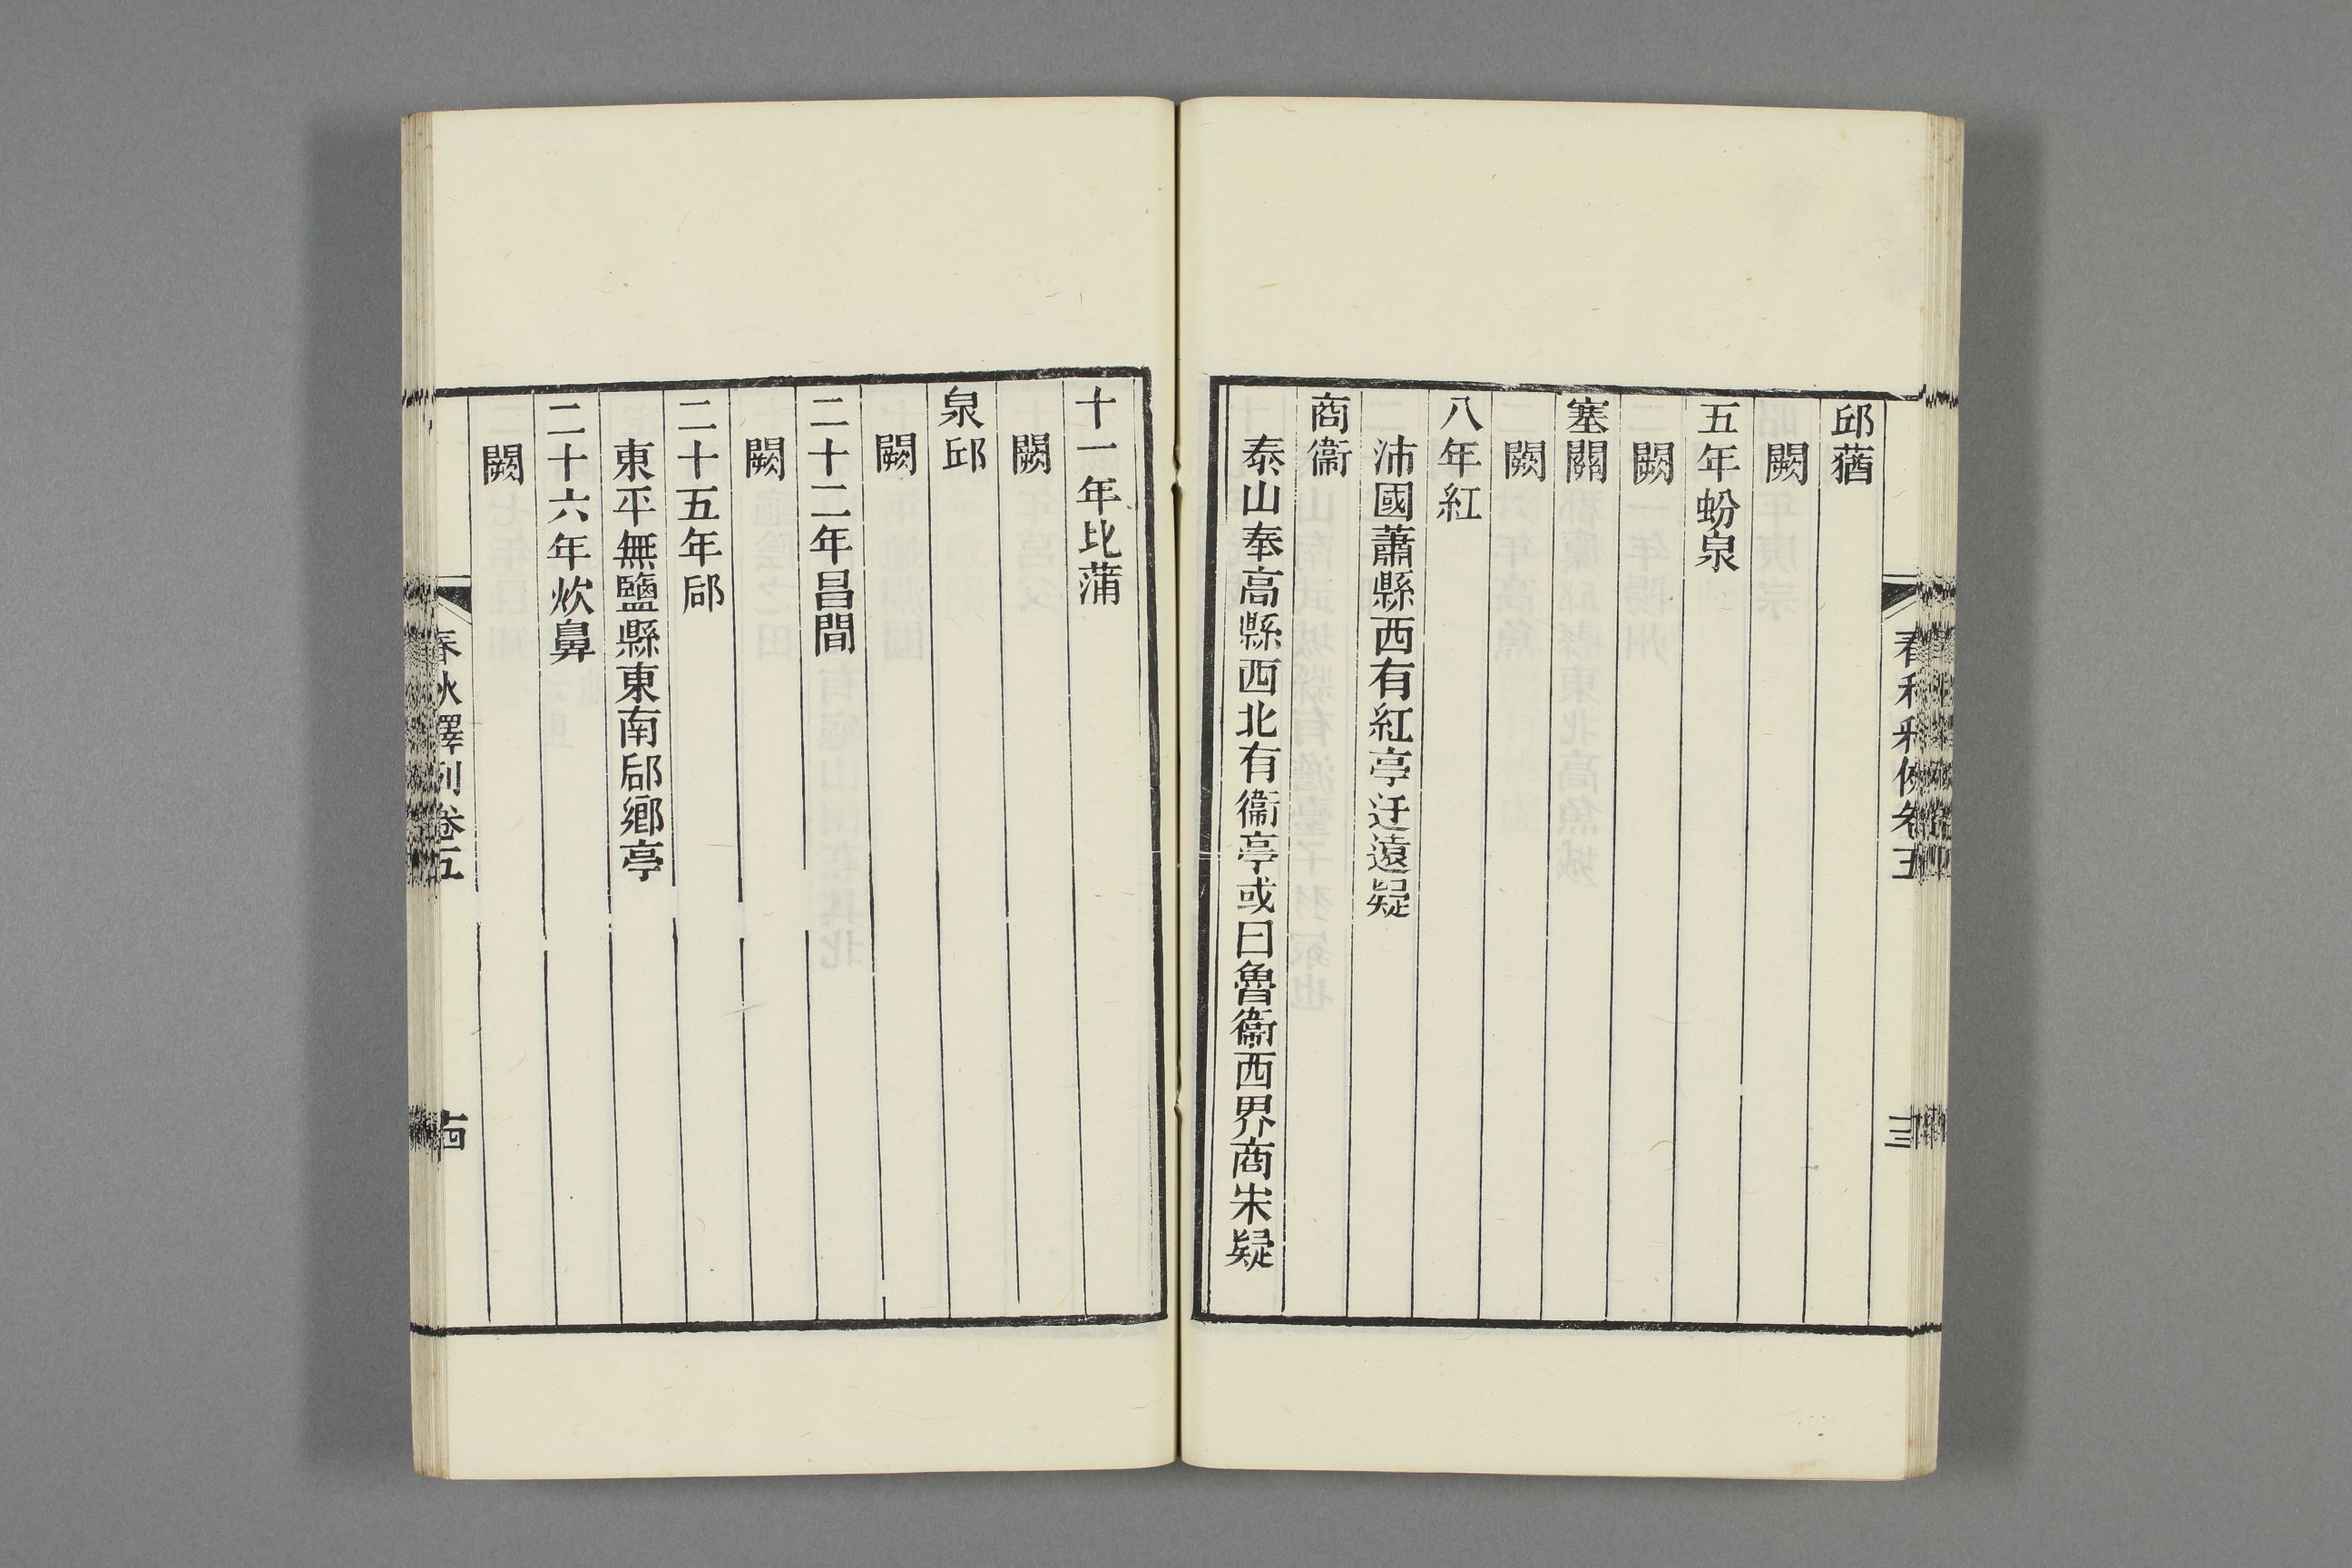 邱蕕
闕
五年蚡泉
闕
塞關
闕
八年紅
沛國蕭縣西有紅亭迂遠疑
商衞
泰山奉高縣西北有衞亭或曰魯衞西界商宋疑
十一年比蒲
闕
泉邱
闕
二十二年昌間
闕
二十五年郈
東平無鹽縣東南郈鄉亭
二十六年炊鼻
闕
春秋釋例卷五
十四